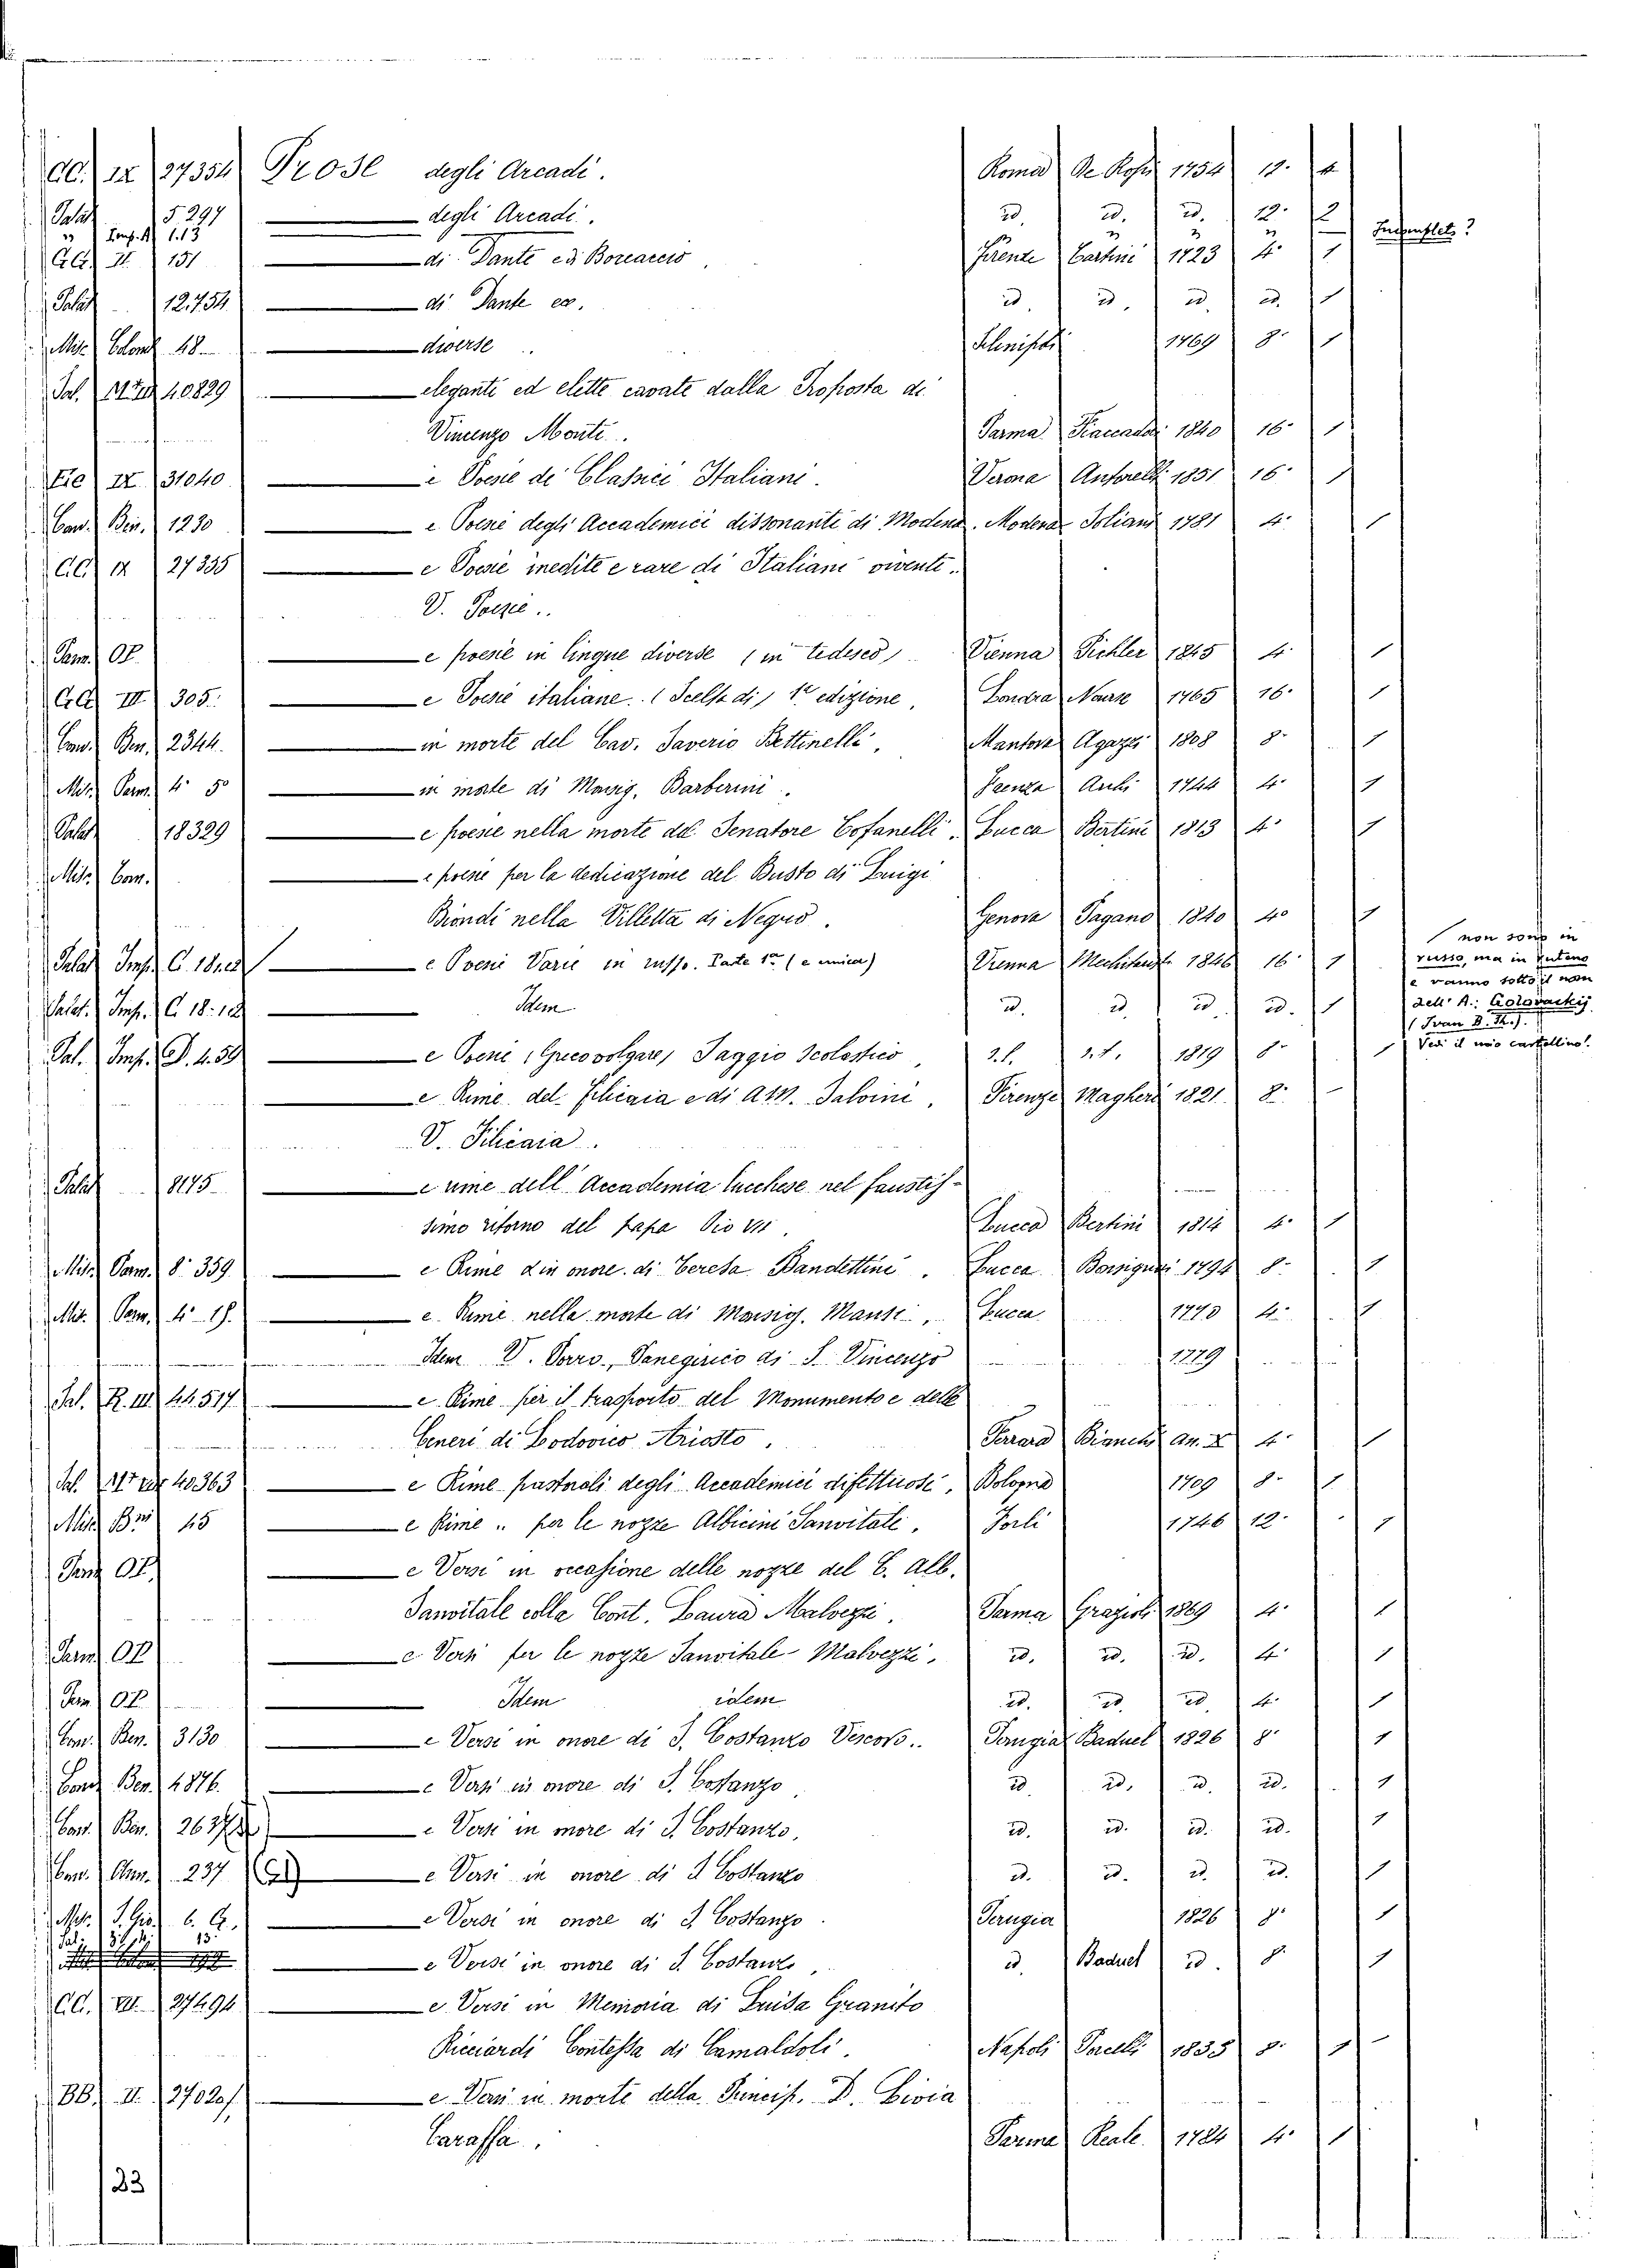 CC. IX 27354 Prose degli Arcadi. Roma De Rossi 1754 12. 4
Palat 5.297 degli Arcadi. id. id. id. 12. 2 Incomplet?
" Imp. 1.13 " " "
CC. II. 151 di Dante ed Boccaccio. Firenze Tartini 1723 4. 1
Palat 12.754 di Dante ec. id. id. id. id. 1
Misc. Colomb 48. diverse 1769 8. 1
Pal. 40829 eleganti ed elette cavate dalla Proposta di
Vincenzo Monti. Parma Fiaccadori 1840 16. 1
IX 31040 e Poesie di Classici Italiani. Verona Antonelli 1851 16. 1
Com. Ben. 1230 e Poesie degli Accademici dissonanti di Modena. Modena Soliani 1781 4. 1
CC. IX 27335 e Poesie inedite e rare di Italiani viventi.
V. Poesie.
Parm. OP. e poesie in lingue diverse (in tedesco) Vienna Pichler 1845 4. 1
CC. III 305. e Poesie italiane. (Scelta di) 1a edizione. Londra Nourse 1765 16. 1
Com. Ben. 2344. in morte del Cav. Saverio Bettinelli. Mantova Agazzi 1808 8. 1
Misc. Parm. 4° 5° in morte di Monsig. Barberini. Faenza Archi 1744 4. 1
Palat 18329 e poesie nella morte del Senatore Cofanelli. Lucca Bertini 1813 4. 1
Misc. Com. e poesie per la dedicazione del Busto di Luigi
Biondi nella Villetta di Negro. Genova Pagano 1840 40 1
Palat Imp. C. 18. e Poesie Varie in russo. Parte 1a (e unica) Vienna Mechitarist. 1846 16. 1
non sono in
russo, ma in ruteno
e vanno sotto il nom
dell' A.: Golovackij
(Ivan B. Th.).
Vedi il mio cartellino!
Palat. Imp. C. 18. 12 Idem id. id. id. id. 1
Pal. Imp. D. 4. 59 e Poesie (Greco volgare) Saggio Scolastico. s.l. s.t. 1819 8. 1
e Rime del Filicaia e di A.M. Salvini. Firenze Magheri 1821 8. —
V. Filicaia.
Palat 8145 e rime dell' Accademia lucchese nel faustis-
simo ritorno del papa Pio VII. Lucca Bertini 1814 4. 1
Misc. Parm. 8° 359 e Rime in onore di Teresa Bandettini. Lucca Bonsignori 1794 8. 1
Misc. Parm. 4° 18. e Rime nella morte di Monsig. Mansi. Lucca 1773 4. 1
Idem V. Porro, Panegirico di S. Vincenzo 1779
Pal. R. III 44.517 e Rime per il trasporto del Monumento e delle
Ceneri di Lodovico Ariosto. Ferrara Bianchi an. X 4. 1
Pal. 40363 e Rime pastorali degli Accademici difettuosi. Bologna 1709 8. 1
Misc. 45 e Rime " per le nozze Albicini Sanvitali. Forlì 1746 12. 1
Parm OP. e Versi in occasione delle nozze del C. Alb.
Sanvitale colla Cont. Laura Malvezzi. Parma Grazioli 1869 4. 1
Parm. OP e Versi per le nozze Sanvitale-Malvezzi. id. id. id. 4. 1
Parm OP Idem idem id. id. id. 4. 1
Com. Ben. 3130 e Versi in onore di S. Costanzo Vescovo. Perugia Baduel 1826 8. 1
Com. Ben. 4876. e Versi in onore di S. Costanzo id. id. id. id. 1
Com. Ben. 2637 e Versi in onore di S. Costanzo. id. id. id. id. 1
Com. Amm. 237 e Versi in onore di S. Costanzo id. id. id. id. 1
e Versi in onore di S. Costanzo. Perugia 1826 8. 1
e Versi in onore di S. Costanzo. id. Baduel id. 8. 1
CC. VII. 27494 e Versi in Memoria di Luisa Granito
Ricciardi Contessa di Camaldoli. Napoli Porcelli 1835 8. 1
BB. II. 27020 e Versi in morte della Princip. D. Livia
Caraffa. Parma Reale 1784 4. 1
133